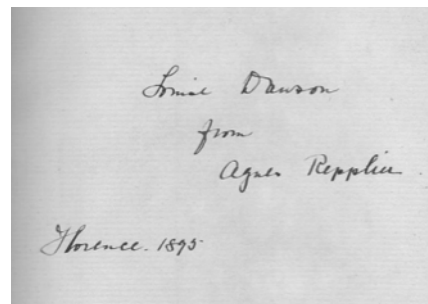 Louise Dawson
from
Agnes Repplier.
Florence. 1895